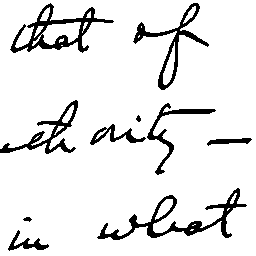 that of
charity —
in what